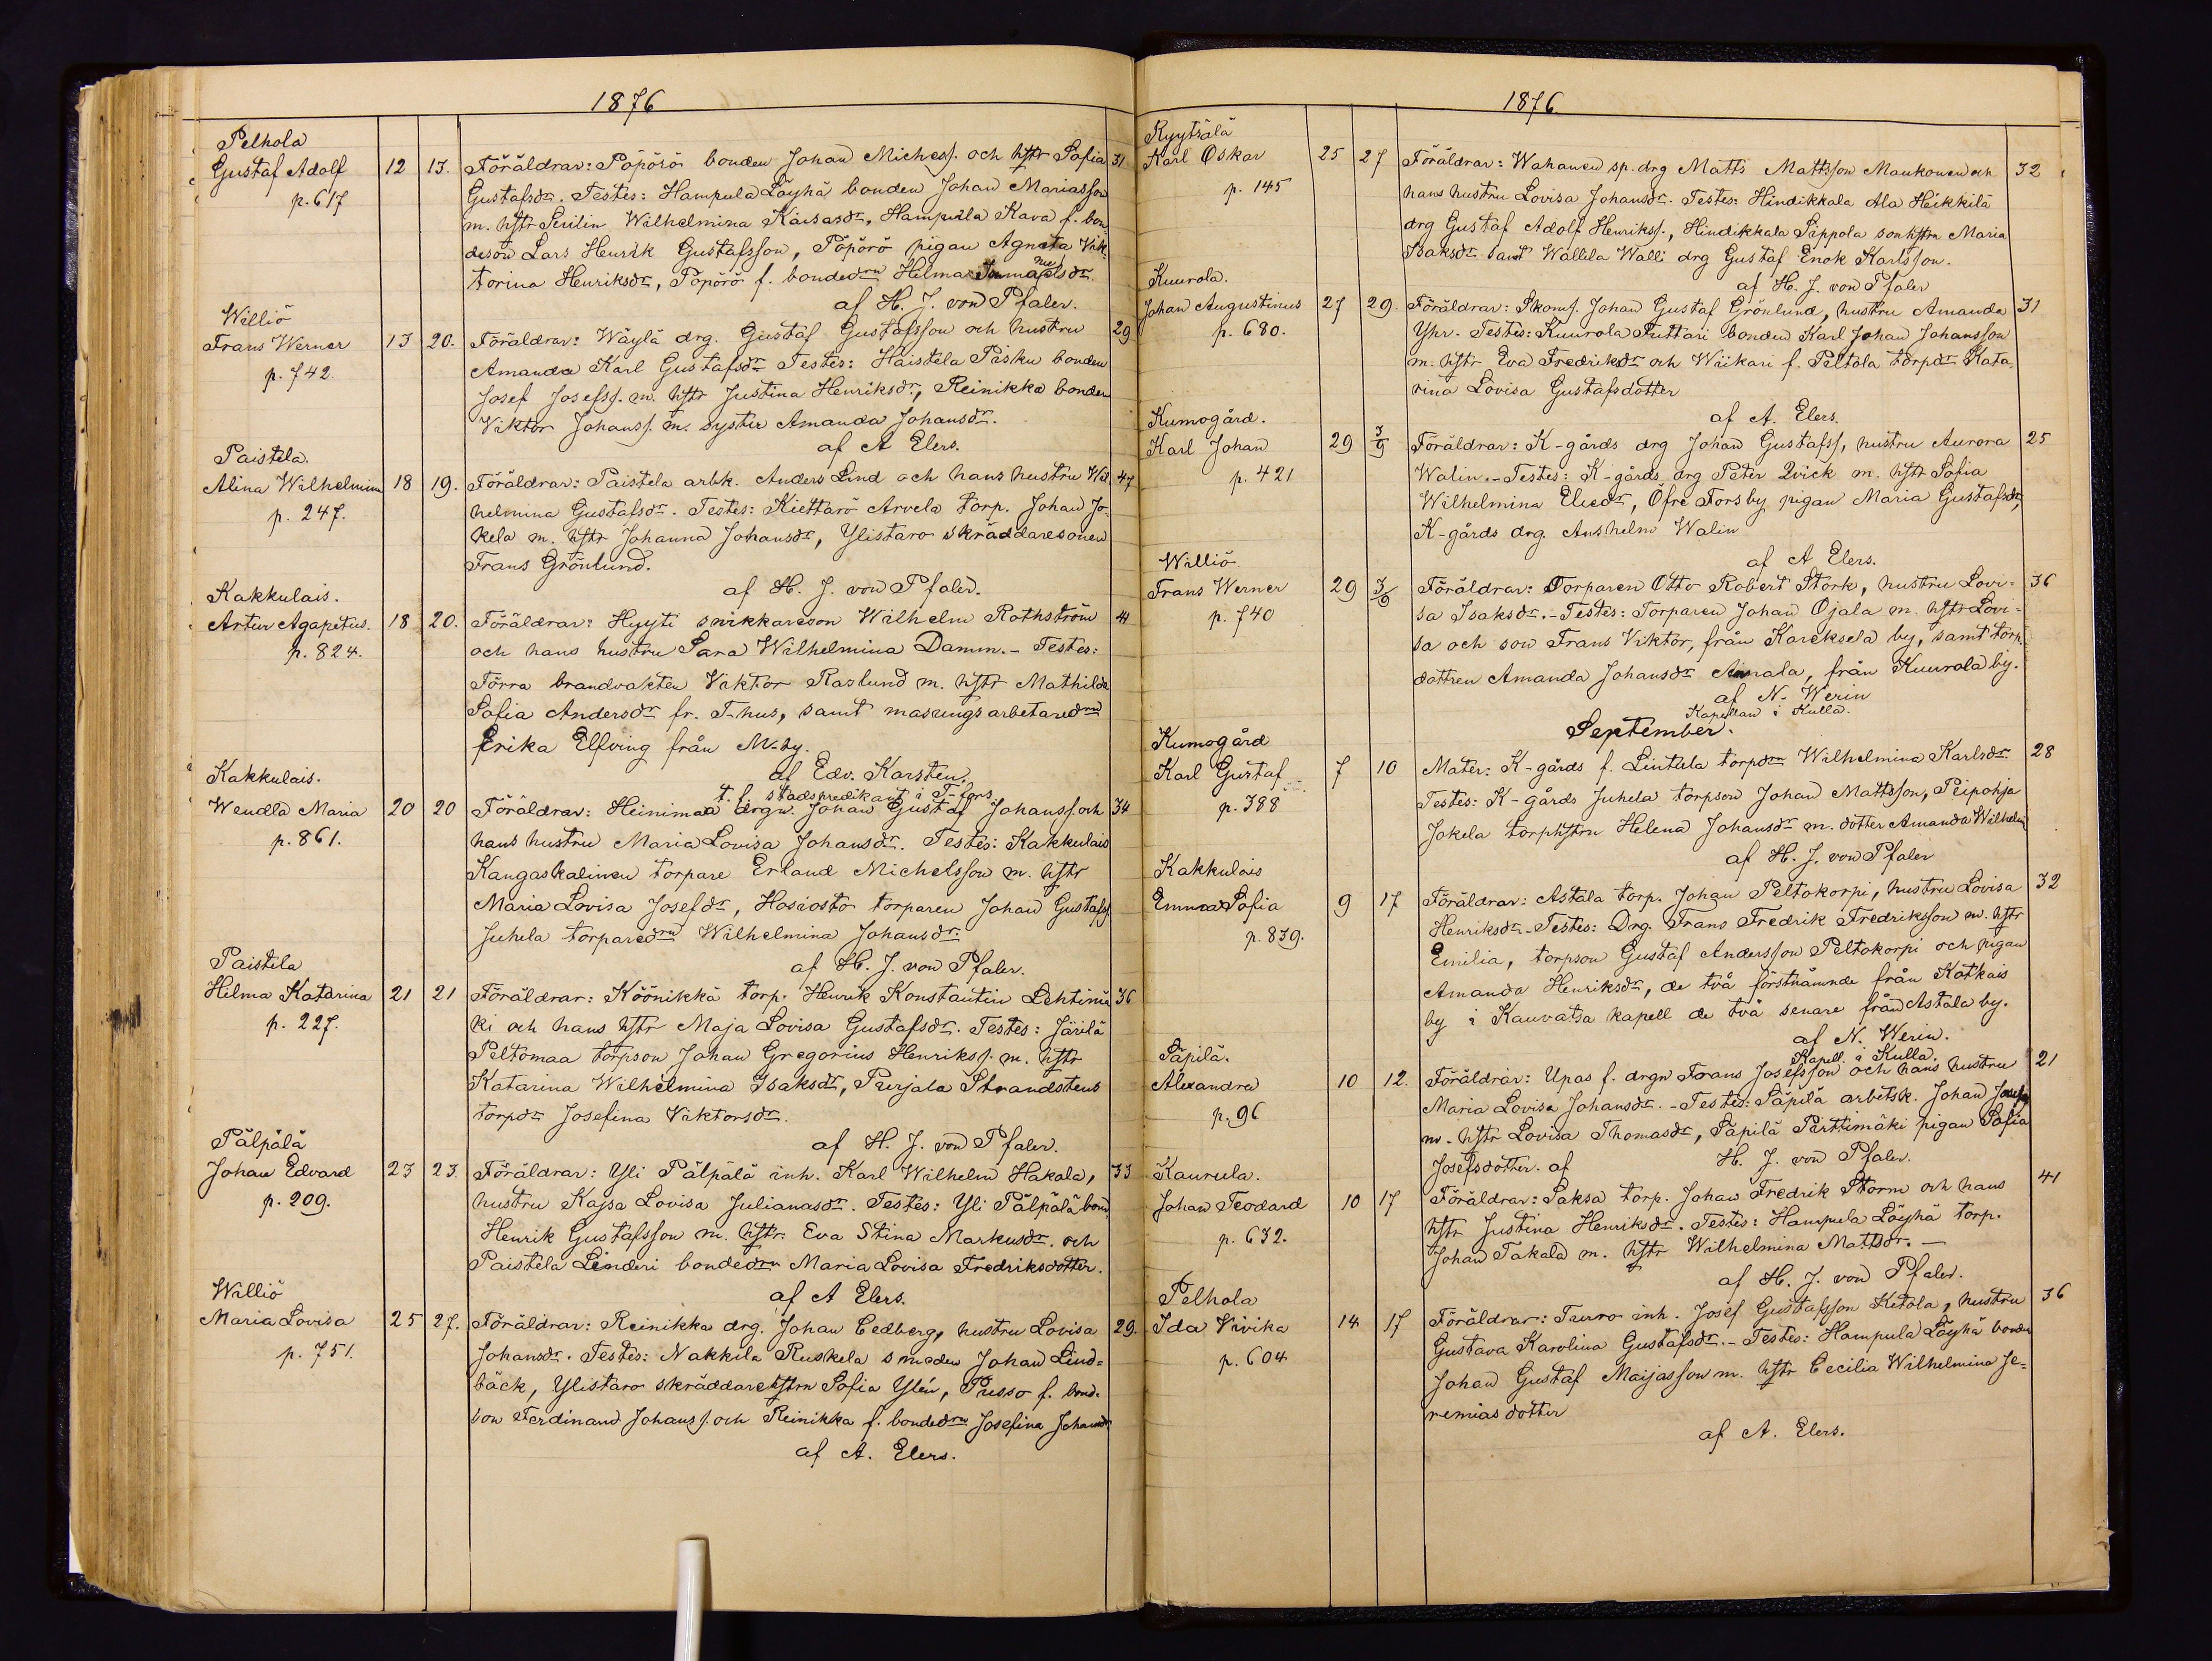 1876
Pelhola
Gustaf Adolf 12 13. Föräldrar: Pöpörö bonden Johan Michelss. och hstr Sofia 31
p. 617 Gustafsdr. Testes: Hampula Löyhä bonden Johan Mariasson
m. hstr Wilhelmina Kaisasdr, Hampula Kava f. bon
deson Lars Henrik Gustafsson, Pöpörö pigan Agneta Vik
torina Henriksdr, Pöpörö f. bondedrn Helma
af H. J. von Pfaler.
Williö
Frans Werner 13 20. Föräldrar: Wäylä drg. Gustaf Gustafsson och hustru 29
p. 742. Amanda Karl Gustafsdr Testes: Haistela Pasku bonden
Josef Josefss. m. hstr Justina Henriksdr, Reinikka bonden
Viktor Johanss. m. syster Amanda Johansdr.
af A Elers.
Paistela.
Alina Wilhelmina 18 19. Föräldrar: Paistela arbk. Anders Lind och hans hustru Wil 47
p. 247. helmina Gustafsdr. Testes: Kiettarö Arvela torp. Johan Jo-
kela m. hstr Johanna Johansdr, Ylistaro skräddaresonen
Frans Grönlund.
af H. J. von Pfaler.
Kakkulais.
Artur Agapetus. 18 20. Föräldrar: Hyyti snikkareson Wilhelm Rothström 41
p. 824. och hans hustru Sara Wilhelmina Damm. - Testes:
Törra brandvakten Viktor Raslund m. hstr Mathilda
Sofia Andersdr fr. T-hus, samt masungsarbetaredrn
Erika Elfving från M-by.
af Edv. Karsten.
t. f. stadspredikant i T-fors
Kakkulais.
Wendla Maria 20 20 Föräldrar: Heinimaa drgn. Johan Gustaf Johanss. och 34
p. 861. hans hustru Maria Lovisa Johansdr. Testes: Kakkulais
Kangaskalinen torpare Erland Michelsson m. hstr
Maria Lovisa Josefdr, Hosiosto torparen Johan Gustafss.
Juhela torparedrn Wilhelmina Johansdr.
af H. J. von Pfaler.
Paistela
Hilma Katarina 21 21 Föräldrar: Köönikkä torp. Henrik Konstantin Lehtimä 36
p. 227. ki och hans hstr Maja Lovisa Gustafsdr. Testes: Järilä
Peltomaa torpson Johan Gregorius Henrikss. m. hstr
Katarina Wilhelmina Isaksdr, Purjala Strandstens
torpdr Josefina Viktorsdr.
af H. J. von Pfaler.
Pälpälä
Johan Edvard 23 23. Föräldrar: Yli Pälpälä inh. Karl Wilhelm Hakala, 33
p. 209. hustru Kajsa Lovisa Julianasdr. Testes: Yli Pälpälä bond
Henrik Gustafsson m. hstr. Eva Stina Markusdr. och
Paistela Linderi bondedrn Maria Lovisa Fredriksdotter.
af A Elers.
Williö
Maria Lovisa 25 27. Föräldrar: Reinikka drg. Johan Cedberg, hustru Lovisa 29.
p. 751. Johansdr. Testes: Nakkila Ruskela smeden Johan Lind=
bäck, Ylistaro skräddarehstrn Sofia Ylén, Pusso f. bond-
son Ferdinand Johanss. och Reinikka f. bondedrn Josefina Johansdr
af A. Elers.
1876.
Ryytsälä
Karl Oskar 25 27 Föräldrar: Wahanen sp. drg Matts Mattsson Maukonen och 32
p. 145 hans hustru Lovisa Johansdr. Testes: Hindikkala Ala Heikkilä
drg Gustaf Adolf Henrikss., Hindikkala Sippola sonhstrn Maria
Isaksdr samt Wallila Walli drg Gustaf Enok Karlsson.
af H. J. von Pfaler
Kuurola.
Johan Augustinus 27 29. Föräldrar: Skoms. Johan Gustaf Grönlund, hustru Amanda 31
p. 680. Yhr. Testes: Kuurola Puttari bonden Karl Johan Johansson
m. hstr Eva Fredriksdr och Wiikari f. Peltola torpdr Kata-
rina Lovisa Gustafsdotter
af A. Elers.
Kumogård.
Karl Johan 29 3/9 Föräldrar: K-gårds drg Johan Gustafss, hustru Aurora 25
p. 421 Walin. - Testes: K-gårds drg Peter Qvick m. hstr Sofia
Wilhelmina Eliedr, Öfre Forsby pigan Maria Gustafsdr,
K-gårds drg. Anshelm Walin
af A Elers.
Williö
Frans Werner 29 3/9 Föräldrar: Torparen Otto Robert Stork, hustru Lovi= 36
p. 740 sa Isaksdr. - Testes: Torparen Johan Ojala m. hstr Lovi=
sa och son Frans Viktor, från Kareksela by, samt torp
dottren Amanda Johansdr Ainala, från Kuurola by.
af N. Werin
Kapellan i Kulla.
September.
Kumogård
Karl Gustaf 7 10 Mater: K-gårds f. Lintula torpdrn Wilhelmina Karlsdr. 28
p. 388 Testes: K-gårds Juhela torpson Johan Mattsson, Peipohja
Jokela torphstrn Helena Johansdr m. dotter Amanda Wilhelm
af H. J. von Pfaler
Kakkulais
Emma Sofia 9 17 Föräldrar: Astala torp. Johan Peltokorpi, hustru Lovisa 32
p. 839. Henriksdr - Testes: Drg. Frans Fredrik Fredriksson m. hstr
Emilia, torpson Gustaf Andersson Peltokorpi och pigan
Amanda Henriksdr, de två förstnämnde från Katkais
by i Kauvatsa kapell de två senare från Astala by.
af N. Werin.
Kapell. i Kulla.
Säpilä.
Alexandra 10 12. Föräldrar: Upas f. drgn Frans Josefsson och hans hustru 21
p. 96 Maria Lovisa Johansdr. - Testes: Säpilä arbetsk. Johan Josefss
m. hstr Lovisa Thomasdr, Säpilä Pirttimäki pigan Sofia
Josefsdotter. af H. J. von Pfaler.
Kaurula.
Johan Teodard 10 17 Föräldrar: Saksa torp. Johan Fredrik Storm och hans 41
p. 632. hstr Justina Henriksdr. Testes: Hampula Löyhä torp.
Johan Takala m. hstr Wilhelmina Mattsdr. -
af H. J. von Pfaler.
Pelhola
Ida Vivika 14 17 Föräldrar: Turro inh. Josef Gustafsson Kitola, hustru 36
p. 604 Gustava Karolina Gustafsdr. - Testes: Hampula Löyhä bonden
Johan Gustaf Maijasson m. hstr Cecilia Wilhelmina Je=
remias dotter
af A. Elers.